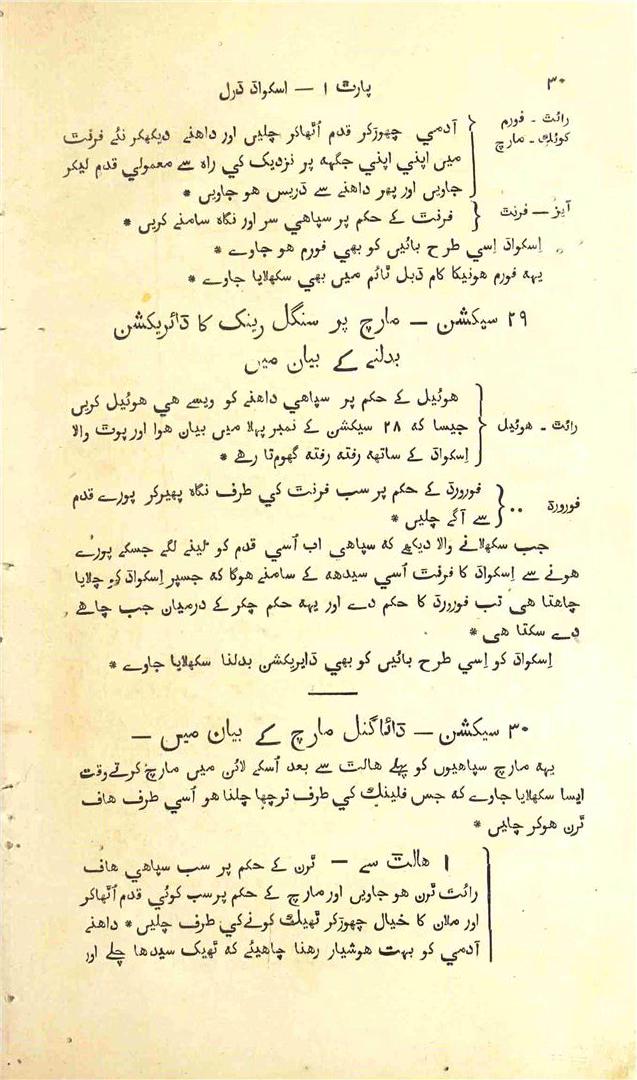 ۳۰
پارٹ ۱ — اسکواڈ ڈرل
رائٹ - فورم
کوئک - مارچ
آدمي چھوڑکر قدم اُٹھاکر چلیں اور داهنے دیکھکر نئے فرنٹ
میں اپني اپني جگهہ پر نزدیک کي راہ سے معمولي قدم لیکر
جاویں اور پھر داهنے سے ڈریس هو جاویں *
آیز — فرنٹ
فرنٹ کے حکم پر سپاهي سر اور نگاہ سامنے کریں *
اِسکواڈ اِسي طرح بائیں کو بھي فورم هو جاوے *
یهہ فورم هونیکا کام ڈبل ٹائم میں بھي سکھلایا جاوے *
۲۹ سیکشن — مارچ پر سنگل رینک کا ڈائریکشن
بدلنے کے بیان میں
رائٹ - هوئیل
هوئیل کے حکم پر سپاهي داهنے کو ویسے هي هوئیل کریں
جیسا کہ ۲۸ سیکشن کے نمبر پہلا میں بیان هوا اور پوٹ والا
اِسکواڈ کے ساتھہ رفتہ رفتہ گھومتا رهے *
فورورڈ ..
فورورڈ کے حکم پر سب فرنٹ کي طرف نگاہ پھیرکر پورے قدم
سے آگے چلیں *
جب سکھلانے والا دیکھے کہ سپاهي اب اُسي قدم کو لینے لگے جسکے پورے
هونے سے اِسکواڈ کا فرنٹ اُسي سیدھہ کے سامنے هوگا کہ جسپر اِسکواڈ کو چلایا
چاهتا هي تب فورورڈ کا حکم دے اور یهہ حکم چکر کے درمیان جب چاهے
دے سکتا هي *
اِسکواڈ کو اِسي طرح بائیں کو بھي ڈایریکشن بدلنا سکھلایا جاوے *
۳۰ سیکشن — ڈائاگنل مارچ کے بیان میں —
یهہ مارچ سپاهیوں کو پہلے هالٹ سے بعد اُسکے لائن میں مارچ کرتے وقت
ایسا سکھلایا جاوے کہ جس فلینک کي طرف ترچھا چلنا هو اُسي طرف هاف
ٹرن هوکر چلیں *
۱ هالٹ سے — ٹرن کے حکم پر سب سپاهي هاف
رائٹ ٹرن هو جاویں اور مارچ کے حکم پر سب کوئي قدم اُٹھاکر
اور ملان کا خیال چھوڑکر ٹھیک کونے کي طرف چلیں * داهنے
آدمي کو بهت هوشیار رهنا چاهیئے کہ ٹھیک سیدھا چلے اور